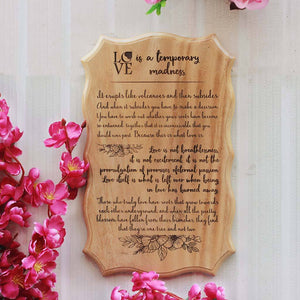 LOVE is a temporary
madness
It erupts like volcanoes and then subsides
And when it subsides you have to make a decision
You have to work out whether your roots have become
so entwined together that it is inconceivable that you
should ever part. Because this is what love is.
Love is not breathlessness,
it is not excitement, it is not the
promulgation of promises of eternal passion
Love itself is what is left over when being
in love has burned away
Those who truly love have roots that grow towards
each other underground, and when all the pretty
blossoms have fallen from their branches, they find
that they are one tree and not two